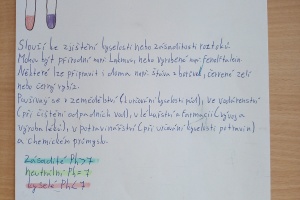 Slouží ke zjištění kyselosti nebo zásaditosti roztoků
Mohou být přírodní např. Lakmus, nebo vyrobené např. fenolftalein
Některé lze připravit i doma např. šťáva z borůvek, červené zelí
nebo černý rybíz.
Používají se v zemědělství (k určování kyselosti půd), ve vodárenství
(při čištění odpadních vod), v lékařství a farmacii (vývoj a
výroba léků), v potravinářství (při určování kyselosti potravin)
a chemickém průmyslu.
Zásadité Ph>7
neutrální Ph=7
kyselé Ph<7